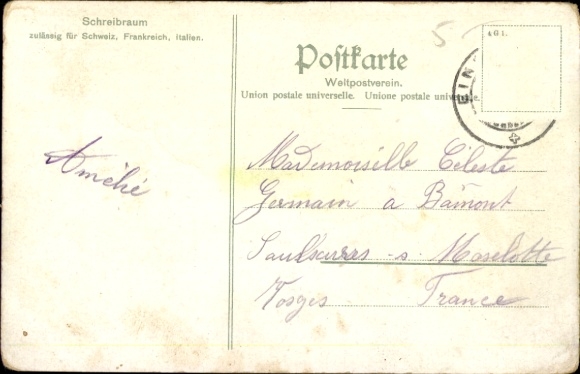 Schreibraum
zulässig für Schweiz, Frankreich, Italien.
5
AGL
Postkarte
Weltpostverein.
Union postale universelle. Unione postale universale.
EIN
Amélie
Mademoiselle Céleste
Germain à Bâmont
Saulxures s Moselotte
Vosges France